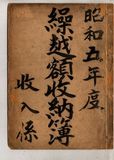 昭和五年度
繰越額收納簿
收入係